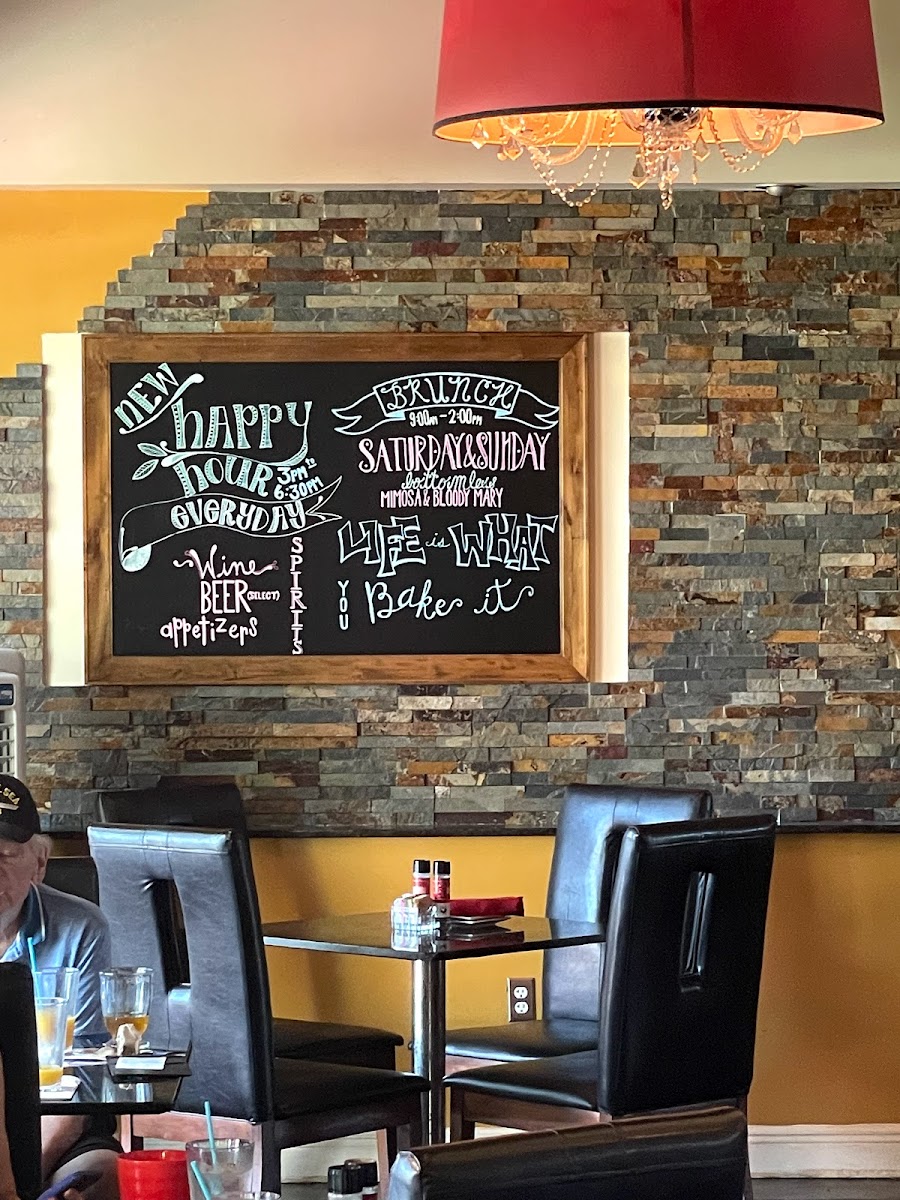 NEW
HAPPY
HOUR 3PM to
6:30PM
EVERYDAY
Wine
BEER (SELECT)
appetizers
SPIRITS
BRUNCH
9:00am - 2:00PM
SATURDAY & SUNDAY
bottomless
MIMOSA & BLOODY MARY
LIFE is WHAT
YOU Bake it